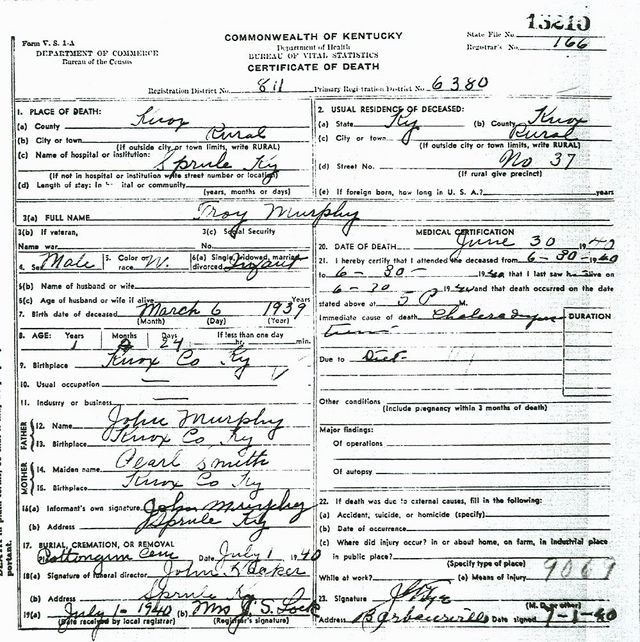 13210
Form V. S. 1-A
COMMONWEALTH OF KENTUCKY
State File No.
DEPARTMENT OF COMMERCE
Bureau of the Census
Department of Health
BUREAU OF VITAL STATISTICS
Registrar's No. 166
CERTIFICATE OF DEATH
Registration District No. 811 Primary Registration District No. 6380
1. PLACE OF DEATH:
(a) County Knox
(b) City or town Rural
(If outside city or town limits, write RURAL)
(c) Name of hospital or institution: Sprule Ky
(If not in hospital or institution write street number or location)
(d) Length of stay: In hospital or community
(years, months or days)
2. USUAL RESIDENCE OF DECEASED:
(a) State Ky (b) County Knox
(c) City or town Rural
(If outside city or town limits, write RURAL)
(d) Street No. No 37
(If rural give precinct)
(e) If foreign born, how long in U. S. A.? years
3(a) FULL NAME Troy Murphy
3(b) If veteran, 3(c) Social Security
Name war No.
4. Sex Male 5. Color or race W. 6(a) Single, widowed, married, divorced Infant
6(b) Name of husband or wife
6(c) Age of husband or wife if alive Years
7. Birth date of deceased March 6 1939
(Month) (Day) (Year)
8. AGE: Years Months Days If less than one day
1 24 hr. min.
9. Birthplace Knox Co Ky
10. Usual occupation
11. Industry or business
FATHER
12. Name John Murphy
13. Birthplace Knox Co Ky
MOTHER
14. Maiden name Pearl Smith
15. Birthplace Knox Co Ky
16(a) Informant's own signature John Murphy
(b) Address Sprule Ky
17. BURIAL, CREMATION, OR REMOVAL
Cem Date July 1 1940
18(a) Signature of funeral director John Hacker
(b) Address Sprule Ky
19(a) July 1-1940 (b) Mrs J. S. Lock
(Date received by local registrar) (Registrar's signature)
MEDICAL CERTIFICATION
20. DATE OF DEATH June 30 1940
21. I hereby certify that I attended the deceased from 6-30-1940
to 6-30- 1940 that I last saw h alive on
6-30 1940 and that death occurred on the date
stated above at 5 P M.
Immediate cause of death
DURATION
Due to Diet
Other conditions
(Include pregnancy within 3 months of death)
Major findings:
Of operations
Of autopsy
22. If death was due to external causes, fill in the following:
(a) Accident, suicide, or homicide (specify)
(b) Date of occurrence
(c) Where did injury occur? in or about home, on farm, in industrial place
in public place?
(Specify type of place)
While at work? (e) Means of injury
23. Signature
(M. D. or other)
Address Barbourville Date signed 7-1-40